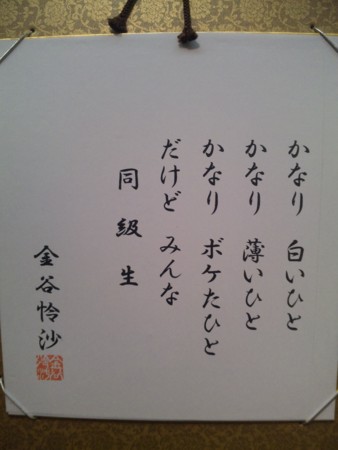 かなり 白いひと
かなり 薄いひと
かなり ボケたひと
だけど みんな
同級生
金谷怜沙